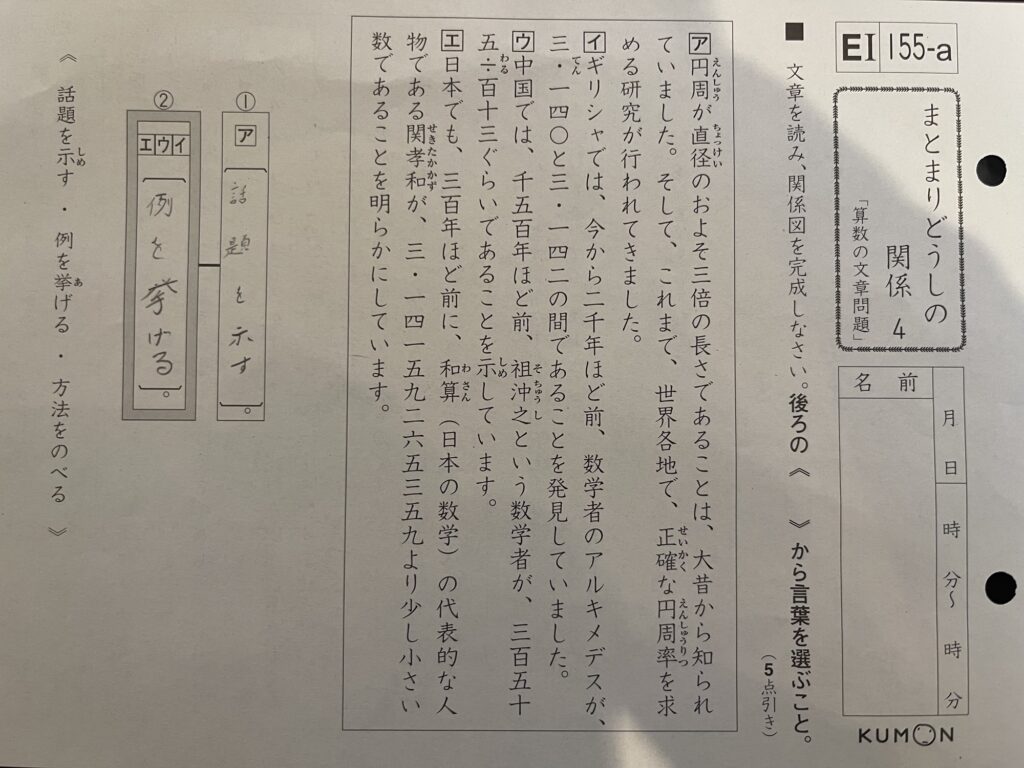 EI 155-a
まとまりどうしの
関係 4
「算数の文章問題」
月 日 時 分〜 時 分
名前
KUMON
■ 文章を読み、関係図を完成しなさい。後ろの《 》から言葉を選ぶこと。
(5点引き)
ア円周が直径のおよそ三倍の長さであることは、大昔から知られ
えんしゅう ちょっけい
ていました。そして、これまで、世界各地で、正確な円周率を求
せいかく えんしゅうりつ
める研究が行われてきました。
イギリシャでは、今から二千年ほど前、数学者のアルキメデスが、
三・一四〇と三・一四二の間であることを発見していました。
てん
ウ中国では、千五百年ほど前、祖沖之という数学者が、三百五十
そちゅうし
五÷百十三ぐらいであることを示しています。
わる しめ
エ日本でも、三百年ほど前に、和算(日本の数学)の代表的な人
わさん
物である関孝和が、三・一四一五九二六五三五九より少し小さい
せきたかかず
数であることを明らかにしています。
① ア〔話題を示す〕。
② イウエ〔例を挙げる〕。
《 話題を示す・例を挙げる・方法をのべる 》
しめ あ